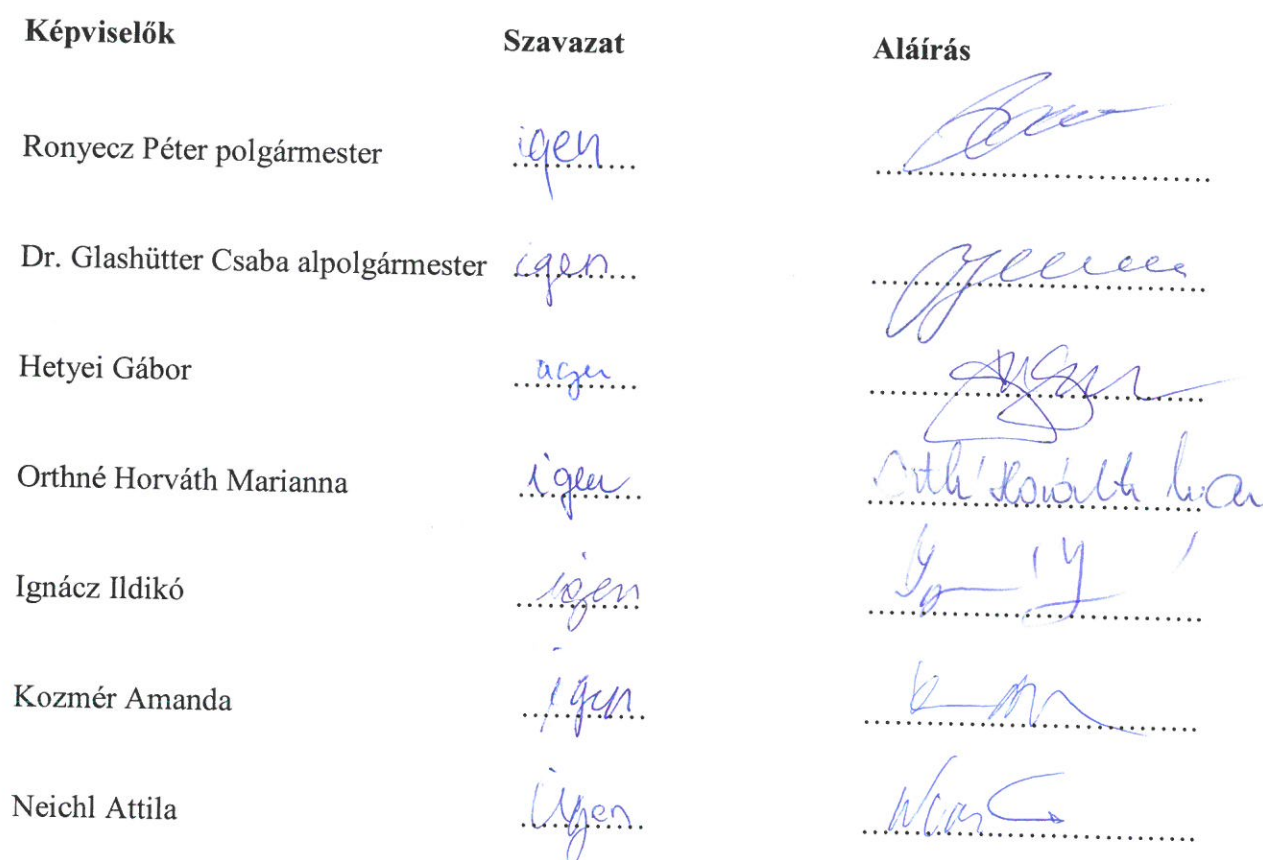 Képviselők Szavazat Aláírás
Ronyecz Péter polgármester igen
Dr. Glashütter Csaba alpolgármester igen
Hetyei Gábor igen
Orthné Horváth Marianna igen Horváth
Ignácz Ildikó igen
Kozmér Amanda igen
Neichl Attila igen